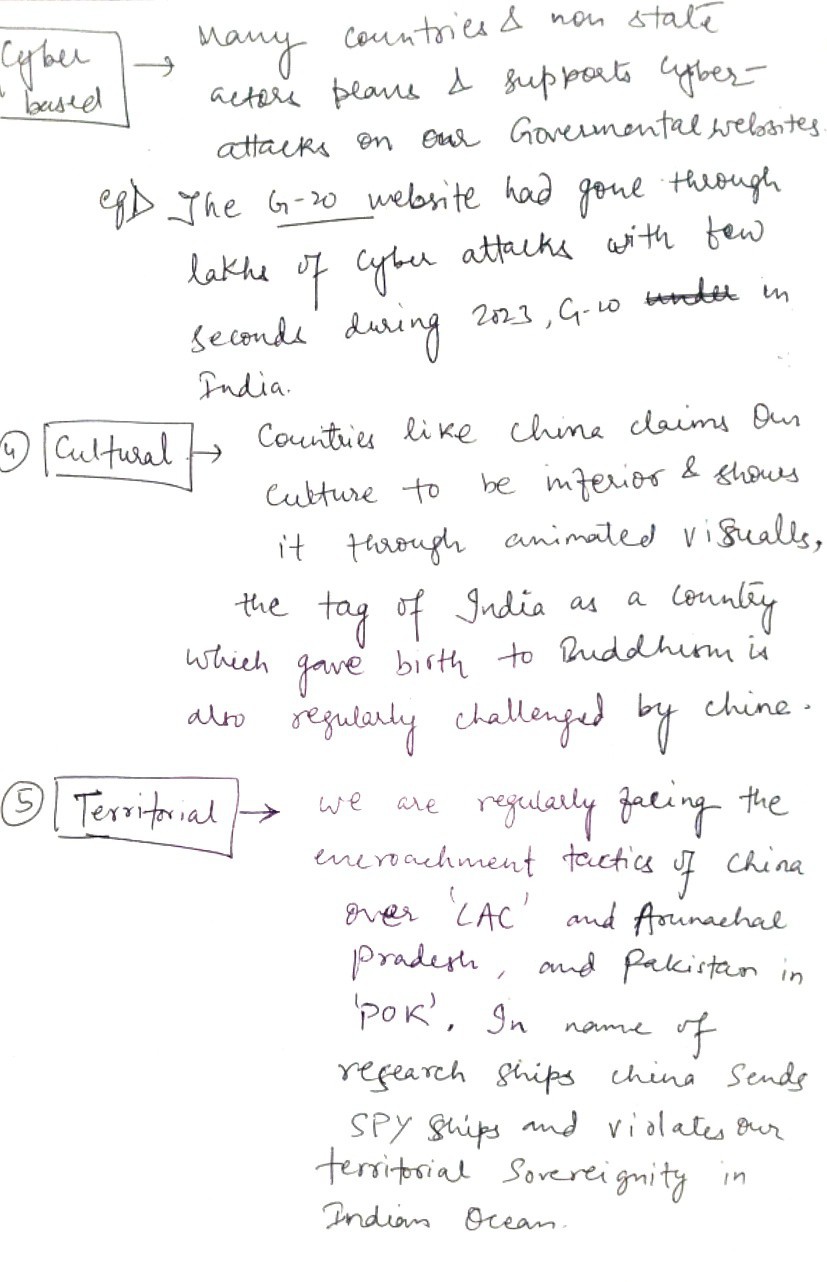 Cyber based → Many countries & non state
actors plans & supports Cyber-
attacks on our Governmental websites.
eg▷ The G-20 website had gone through
lakhs of Cyber attacks with few
seconds during 2023, G-20 ~~under~~ in
India.
④ Cultural → Countries like China claims our
culture to be inferior & shows
it through animated visualls,
the tag of India as a country
which gave birth to Buddhism is
also regularly challenged by chine.
⑤ Territorial → we are regularly facing the
encroachment tactics of China
over 'LAC' and Arunachal
Pradesh, and Pakistan in
'POK'. In name of
research ships china sends
SPY ships and violates our
territorial Sovereignity in
Indian Ocean.